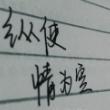 纵使
情为空